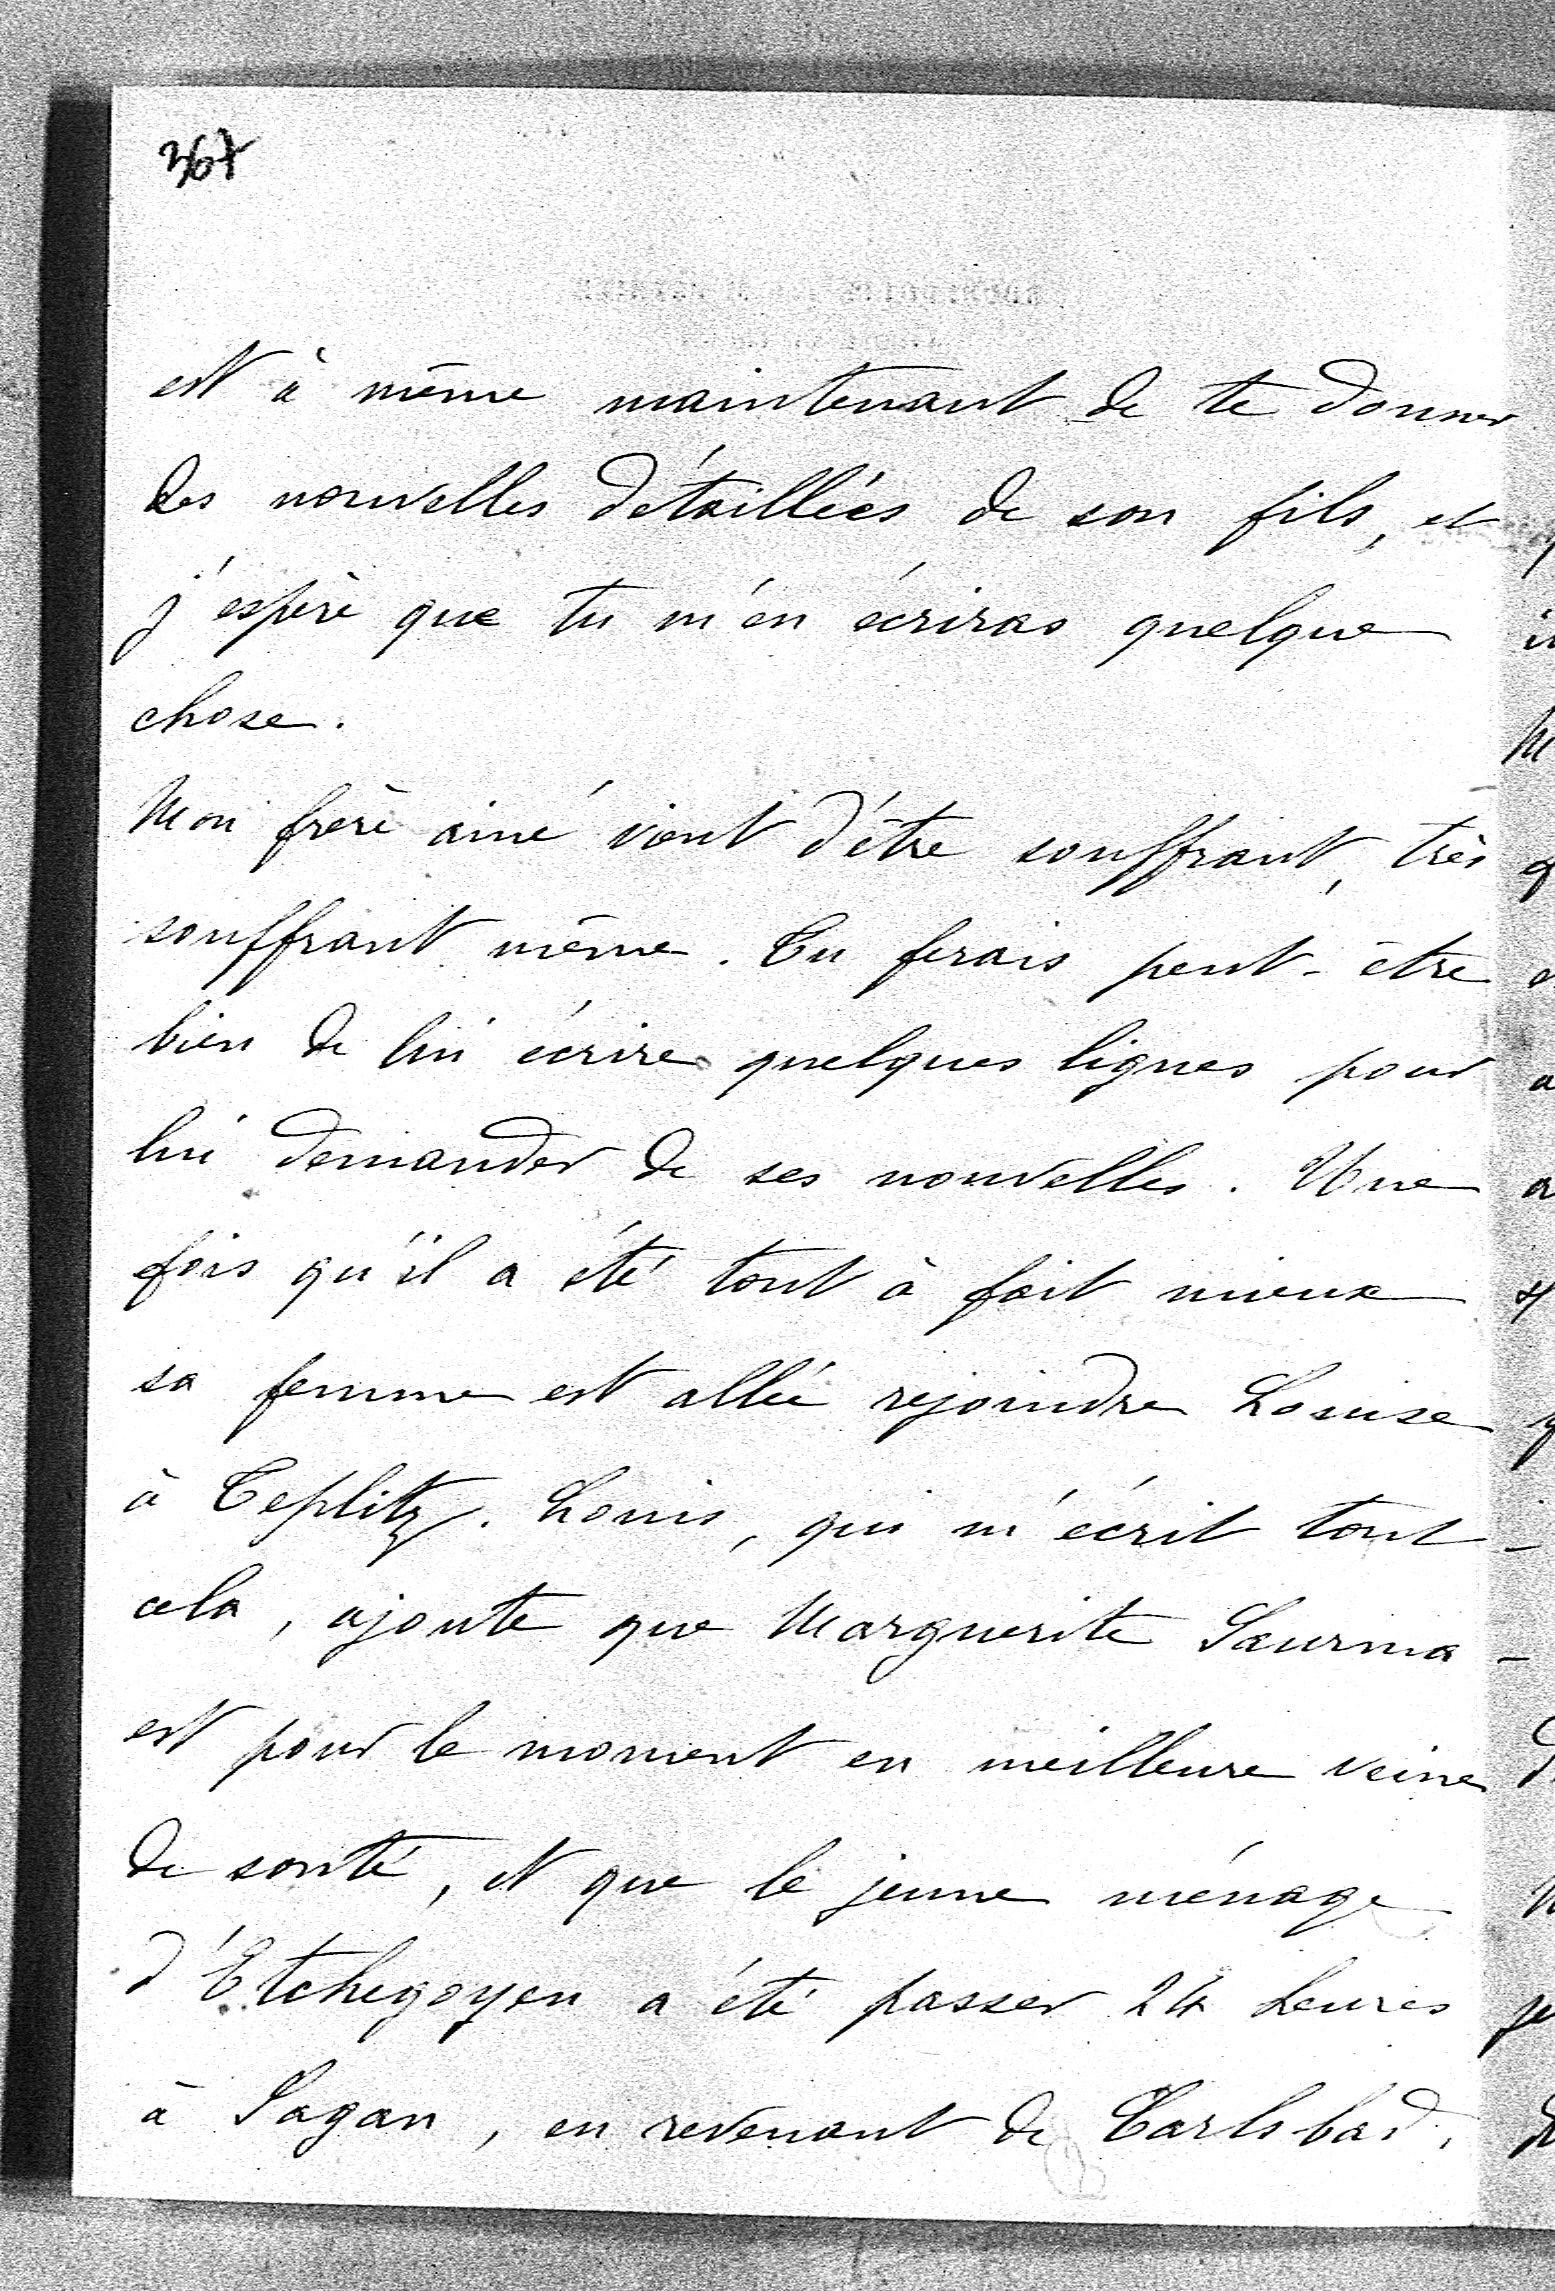 367
est à même maintenant de te donner
des nouvelles détaillées de son fils, et
j'espère que tu m'en écriras quelque
chose.
Mon frère ainé vient d'être souffrant, très
souffrant même. Tu ferais peut-être
bien de lui écrire quelques lignes pour
lui demander de ses nouvelles. Une
fois qu'il a été tout à fait mieux
sa femme est allée rejoindre Louise
à Teplitz. Louis, qui m'écrit tout
cela, ajoute que Marguerite Saurma
est pour le moment en meilleure veine
de santé, et que le jeune ménage
d'Etchegoyen a été passer 24 heures
à Sagan, en revenant de Carlsbad.